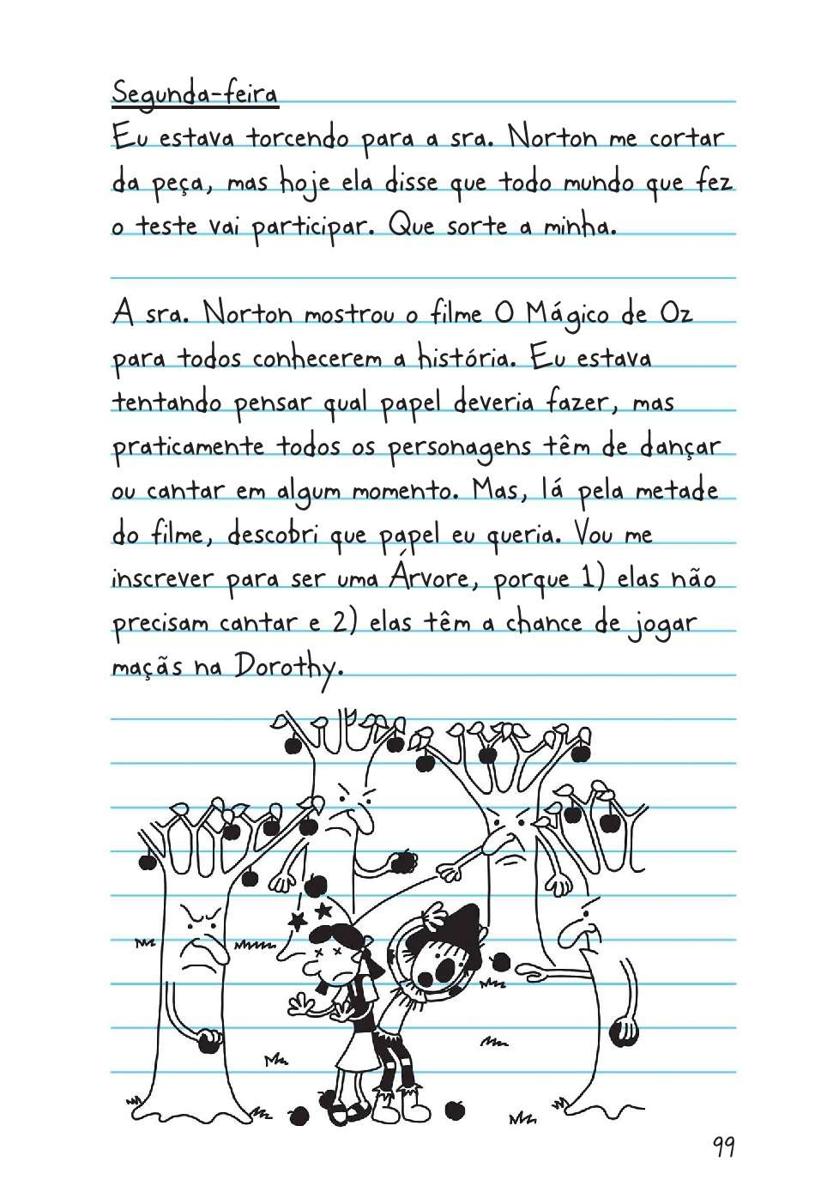 Segunda-feira
Eu estava torcendo para a sra. Norton me cortar
da peça, mas hoje ela disse que todo mundo que fez
o teste vai participar. Que sorte a minha.
A sra. Norton mostrou o filme O Mágico de Oz
para todos conhecerem a história. Eu estava
tentando pensar qual papel deveria fazer, mas
praticamente todos os personagens têm de dançar
ou cantar em algum momento. Mas, lá pela metade
do filme, descobri que papel eu queria. Vou me
inscrever para ser uma Árvore, porque 1) elas não
precisam cantar e 2) elas têm a chance de jogar
maçãs na Dorothy.
99